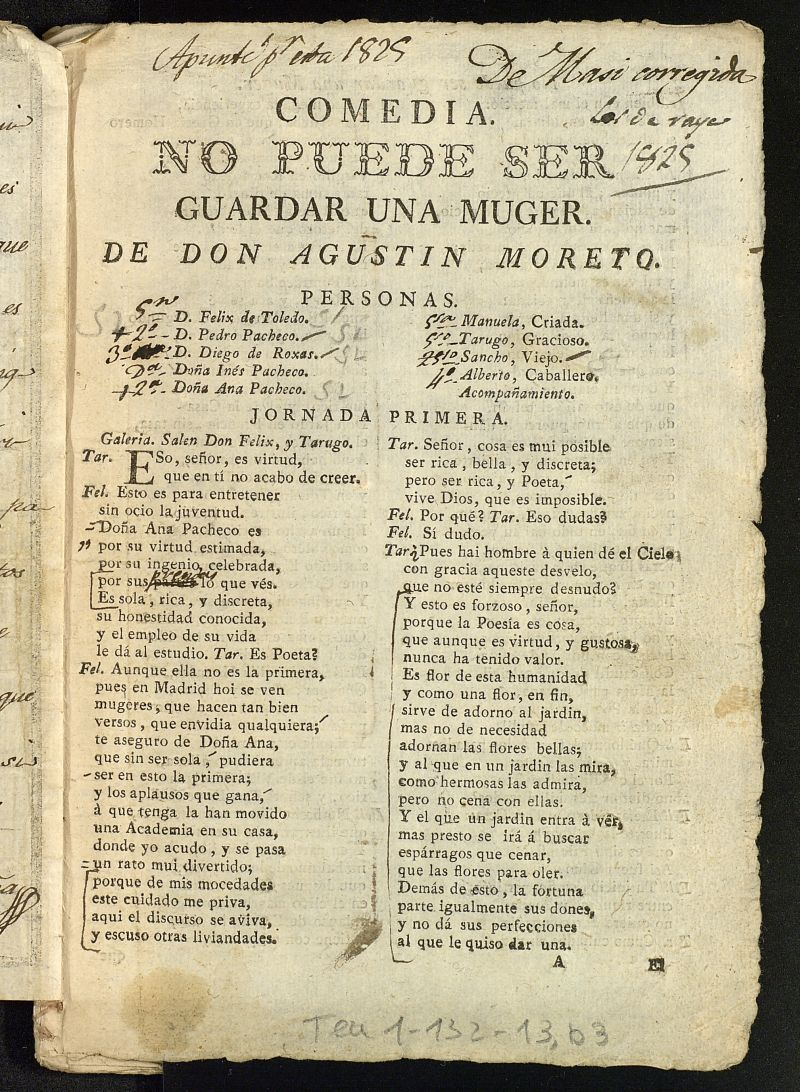 Apunte pr esta 1825
De Masi corregida
los de raya
1825
COMEDIA.
NO PUEDE SER
GUARDAR UNA MUGER.
DE DON AGUSTIN MORETO.
PERSONAS.
D. Felix de Toledo.
+ 2º D. Pedro Pacheco.
3º D. Diego de Roxas.
Doña Inés Pacheco.
+ 2ª Doña Ana Pacheco.
Manuela, Criada.
Tarugo, Gracioso.
Sancho, Viejo.
4º Alberto, Caballero.
Acompañamiento.
JORNADA PRIMERA.
Galeria. Salen Don Felix, y Tarugo.
Tar. ESo, señor, es virtud,
que en tí no acabo de creer.
Fel. Esto es para entretener
sin ocio la juventud.
Doña Ana Pacheco es
por su virtud estimada,
por su ingenio celebrada,
por sus prendas lo que vés.
Es sola, rica, y discreta,
su honestidad conocida,
y el empleo de su vida
le dá al estudio. Tar. Es Poeta?
Fel. Aunque ella no es la primera,
pues en Madrid hoi se ven
mugeres, que hacen tan bien
versos, que envidia qualquiera;
te aseguro de Doña Ana,
que sin ser sola, pudiera
ser en esto la primera;
y los aplausos que gana,
à que tenga la han movido
una Academia en su casa,
donde yo acudo, y se pasa
un rato mui divertido;
porque de mis mocedades
este cuidado me priva,
aqui el discurso se aviva,
y escuso otras liviandades.
Tar. Señor, cosa es mui posible
ser rica, bella, y discreta;
pero ser rica, y Poeta,
vive Dios, que es imposible.
Fel. Por qué? Tar. Eso dudas?
Fel. Sí dudo.
Tar. ¿Pues hai hombre à quien dé el Cielo
con gracia aqueste desvelo,
que no esté siempre desnudo?
Y esto es forzoso, señor,
porque la Poesía es cosa,
que aunque es virtud, y gustosa,
nunca ha tenido valor.
Es flor de esta humanidad
y como una flor, en fin,
sirve de adorno al jardin,
mas no de necesidad
adornan las flores bellas;
y al que en un jardin las mira,
como hermosas las admira,
pero no cena con ellas.
Y el que un jardin entra à vér,
mas presto se irá á buscar
espárragos que cenar,
que las flores para oler.
Demás de esto, la fortuna
parte igualmente sus dones,
y no dá sus perfecciones
al que le quiso dar una.
A
El
Tea 1-132-13, b3